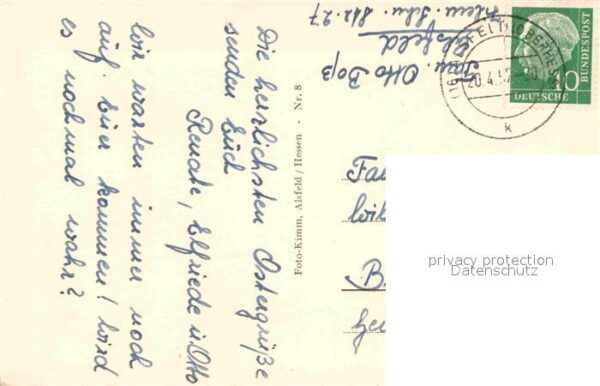 Die herzlichsten Ostergrüße
senden Euch
Renate, Elfriede u. Otto
Wir warten immer noch
auf Euer kommen! Wird
es nochmal wahr?
Foto-Kimm, Alsfeld / Hessen · Nr. 8
Fam. Otto Boß
Alsfeld
Str. 27
20.4.
k
10
DEUTSCHE
BUNDESPOST
Fa
B
privacy protection
Datenschutz